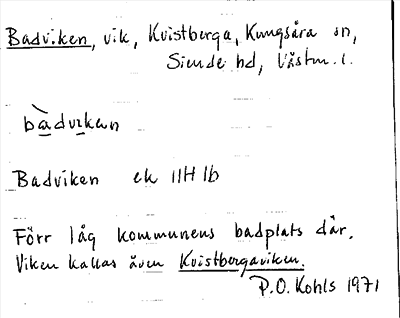 Badviken, vik, Kvistberga, Kungsåra sn,
Siende hd, Västm. l.
bàdvikən
Badviken ek 11H 1b
Förr låg kommunens badplats där.
Viken kallas även Kvistbergaviken.
P.O. Kohls 1971